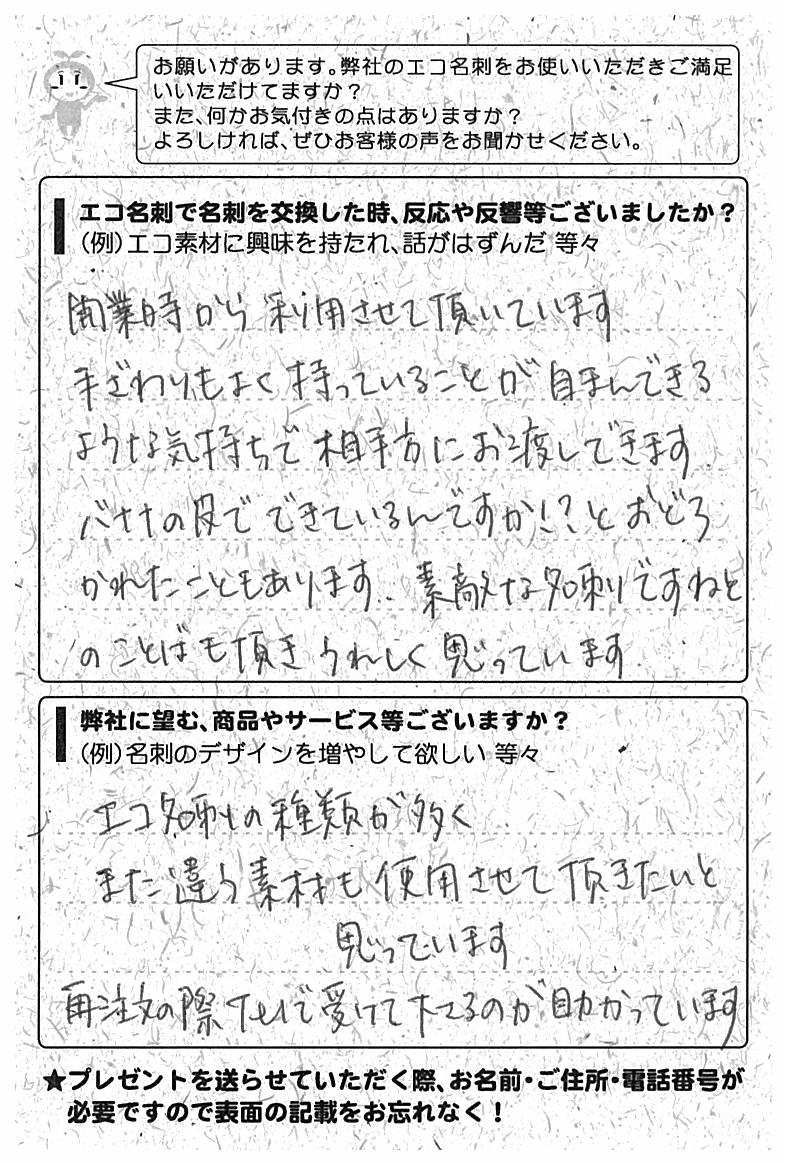 お願いがあります。弊社のエコ名刺をお使いいただきご満足
いいただけてますか？
また、何かお気付きの点はありますか？
よろしければ、ぜひお客様の声をお聞かせください。
エコ名刺で名刺を交換した時、反応や反響等ございましたか？
（例）エコ素材に興味を持たれ、話がはずんだ 等々
開業時から利用させて頂いています
手ざわりもよく持っていることが自まんできる
ような気持ちで相手方にお渡しできます
バナナの皮でできているんですか!?とおどろ
かれたこともあります。素敵な名刺ですねと
のことばも頂きうれしく思っています
弊社に望む、商品やサービス等ございますか？
（例）名刺のデザインを増やして欲しい 等々
エコ名刺の種類が多く
また違う素材も使用させて頂きたいと
思っています
再注文の際Telで受けて下さるのが助かっています
★プレゼントを送らせていただく際、お名前・ご住所・電話番号が
必要ですので表面の記載をお忘れなく！